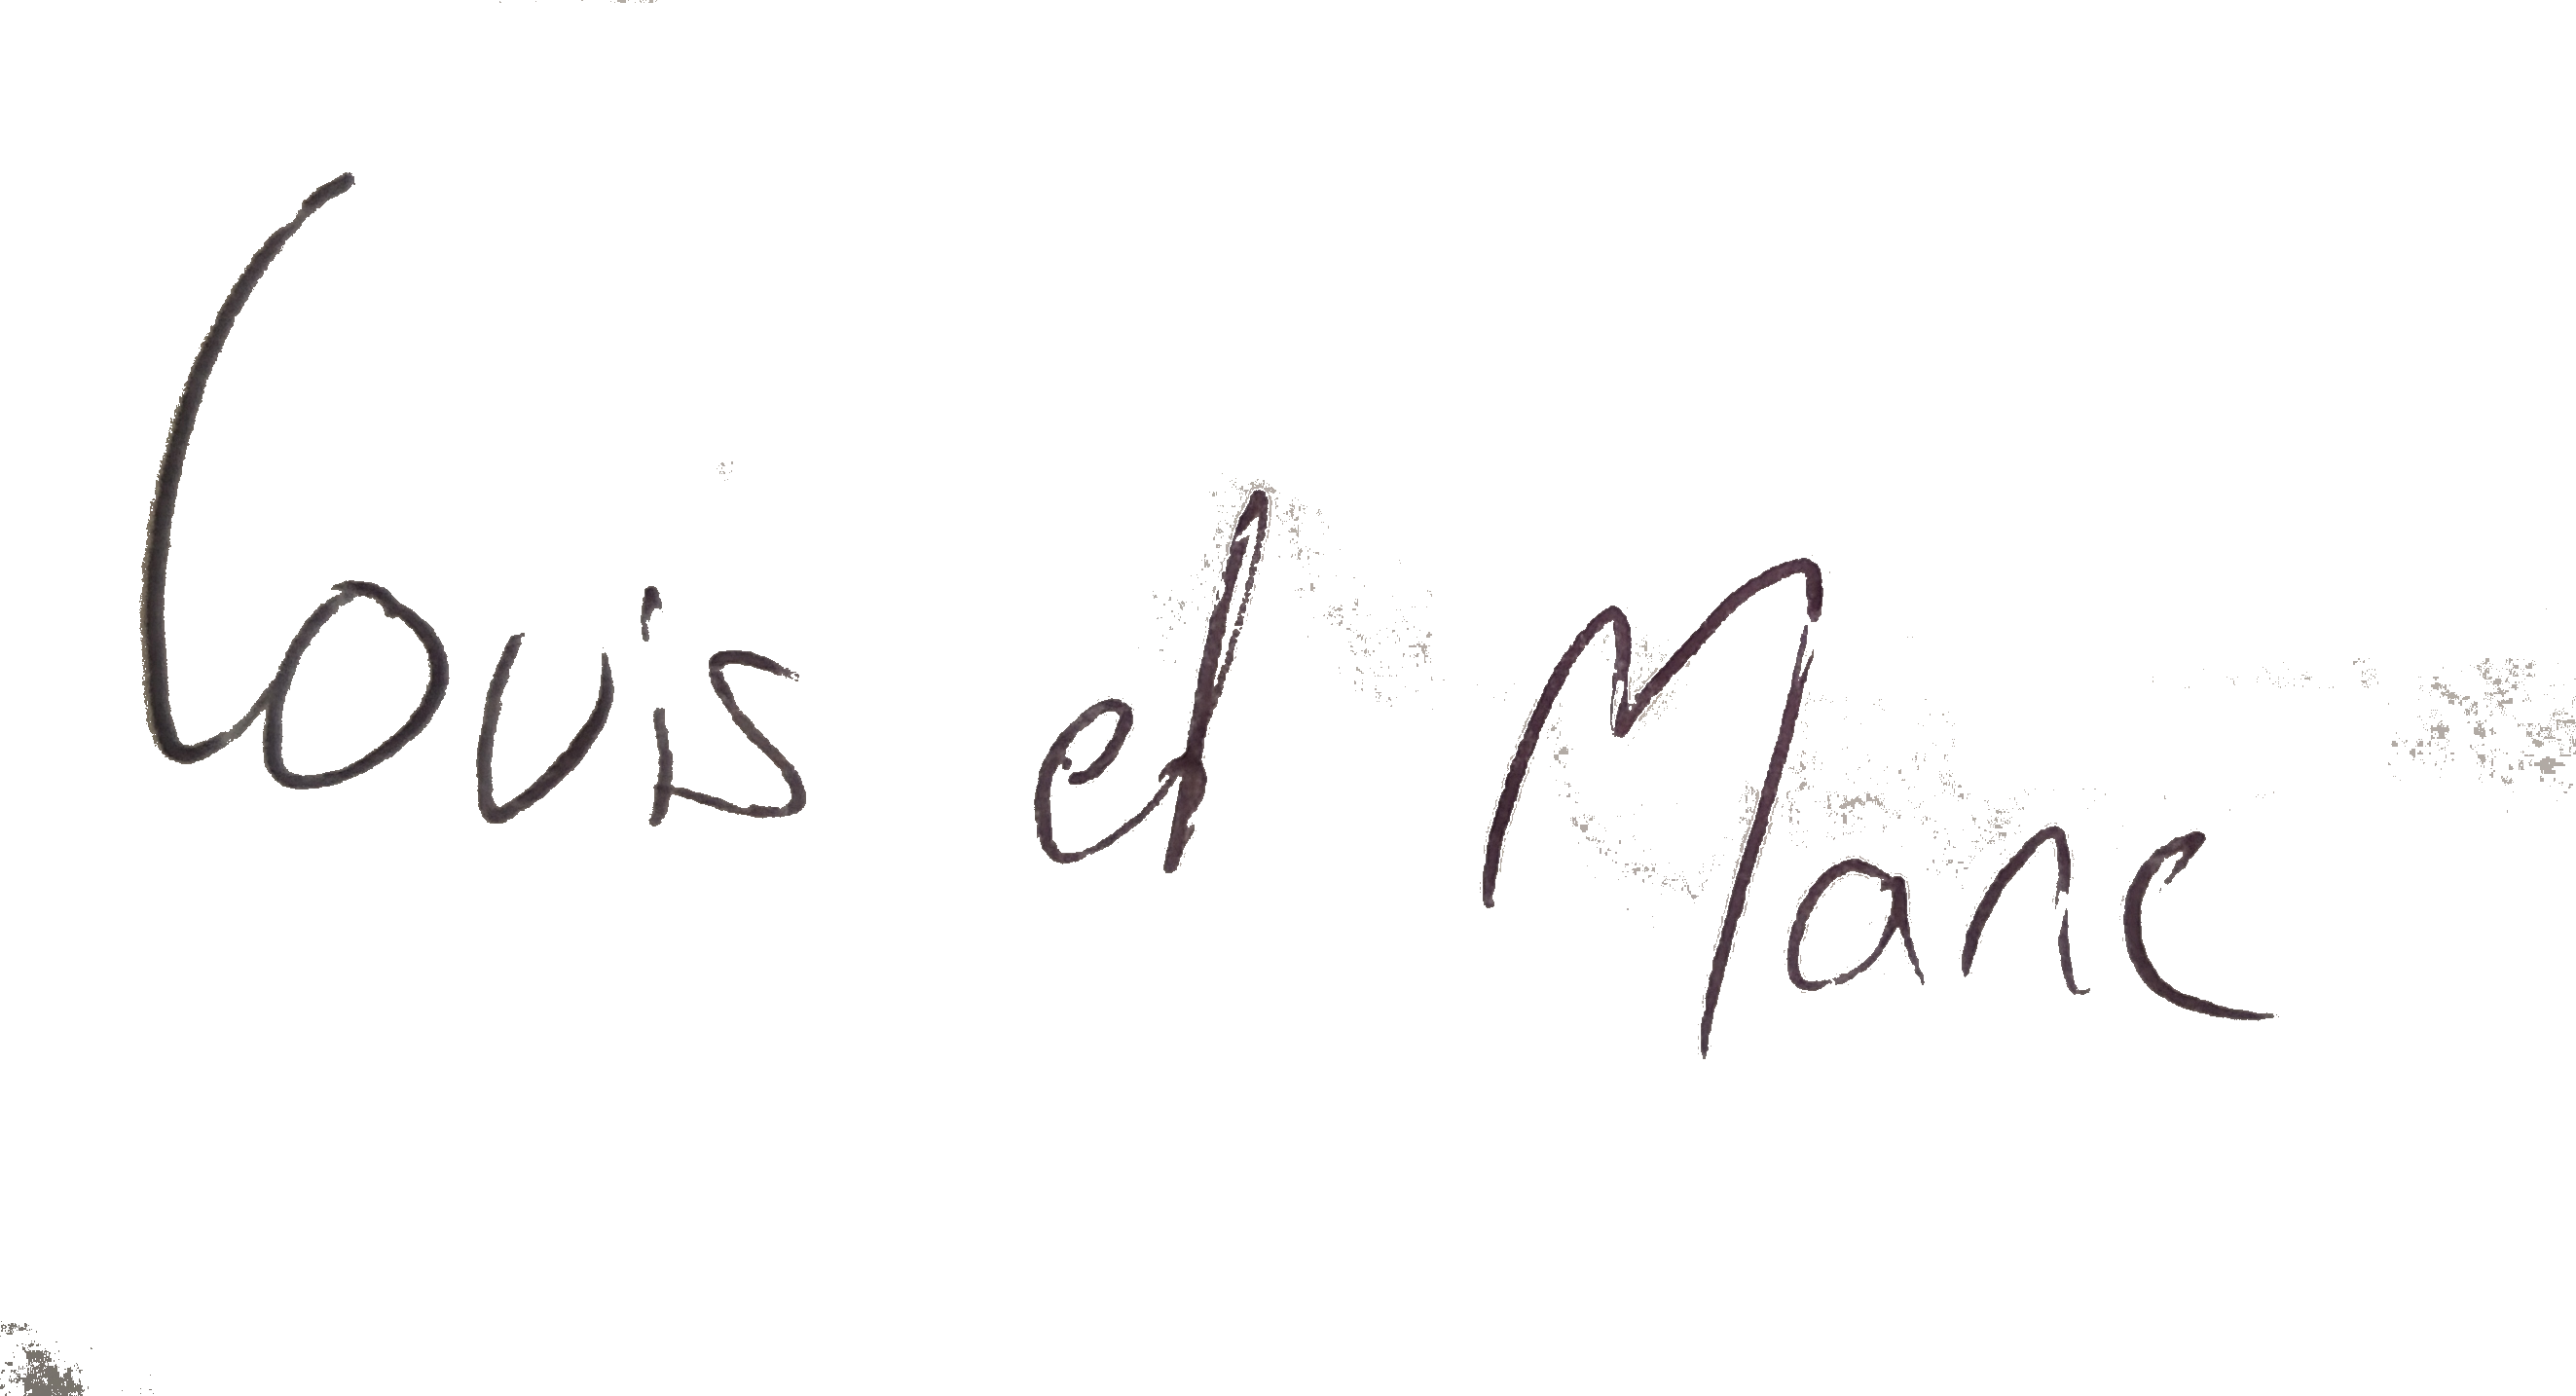 Louis et Marc